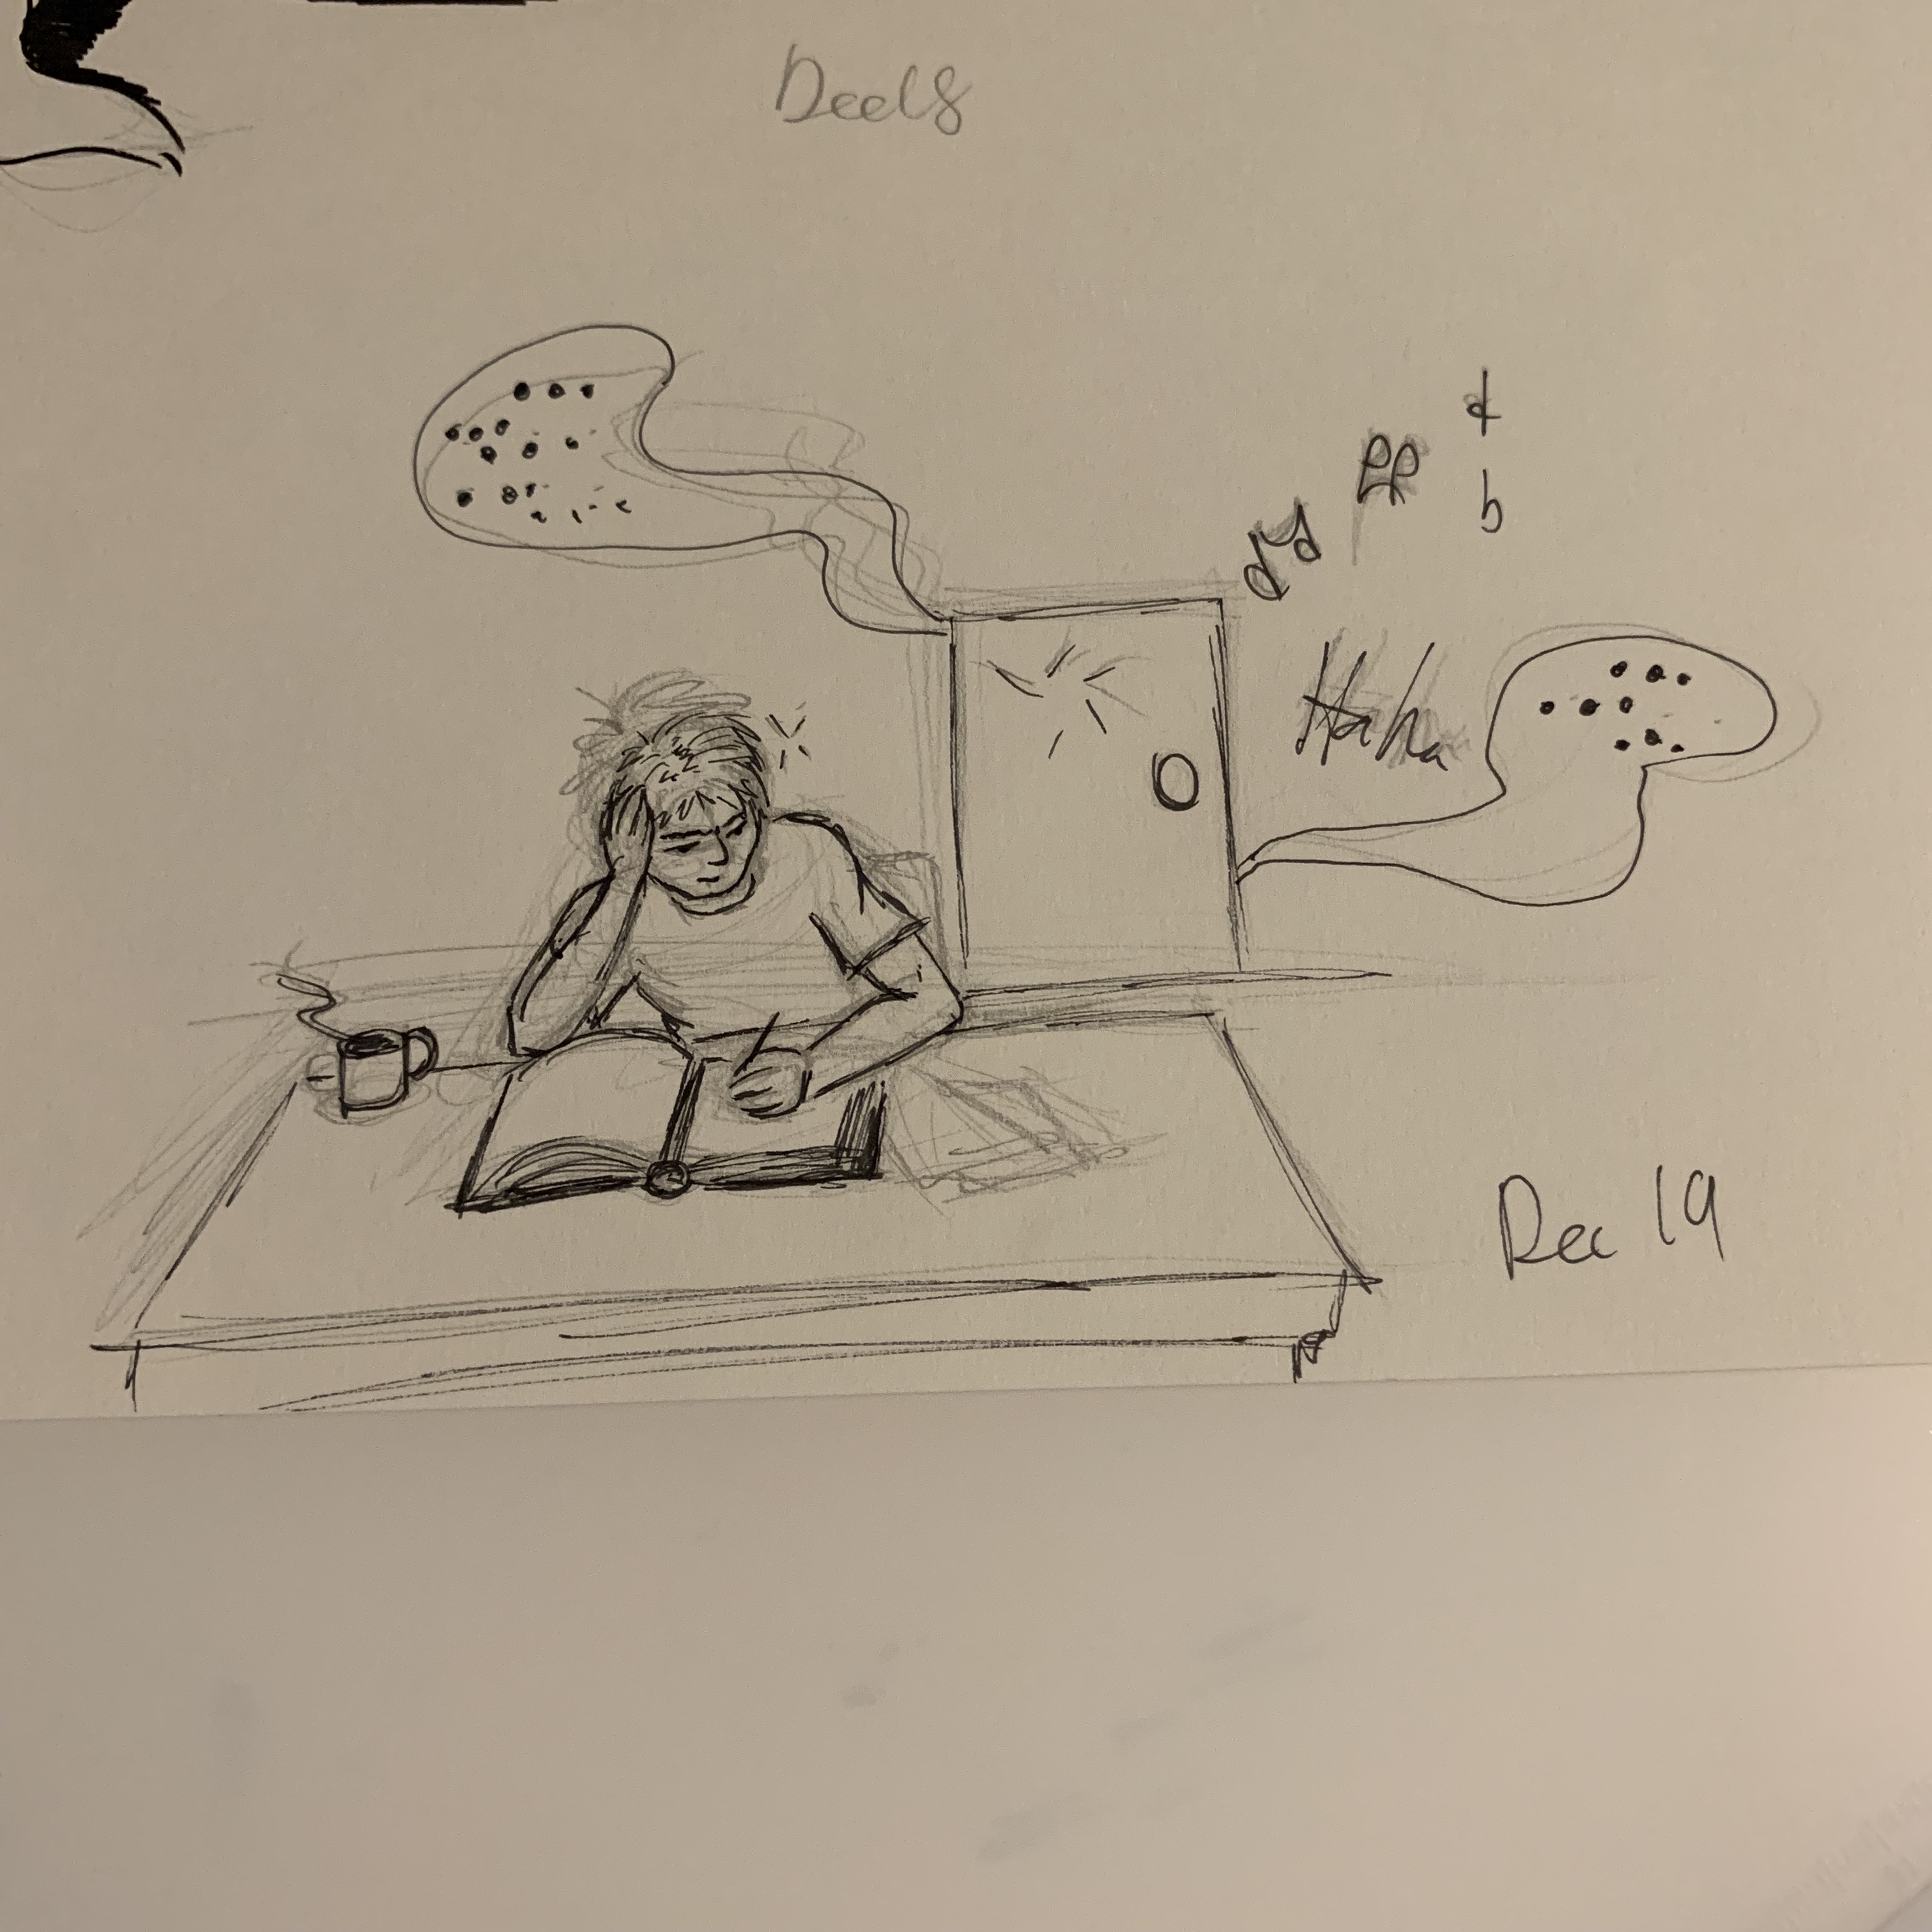 Dec18
Haha
Dec 19